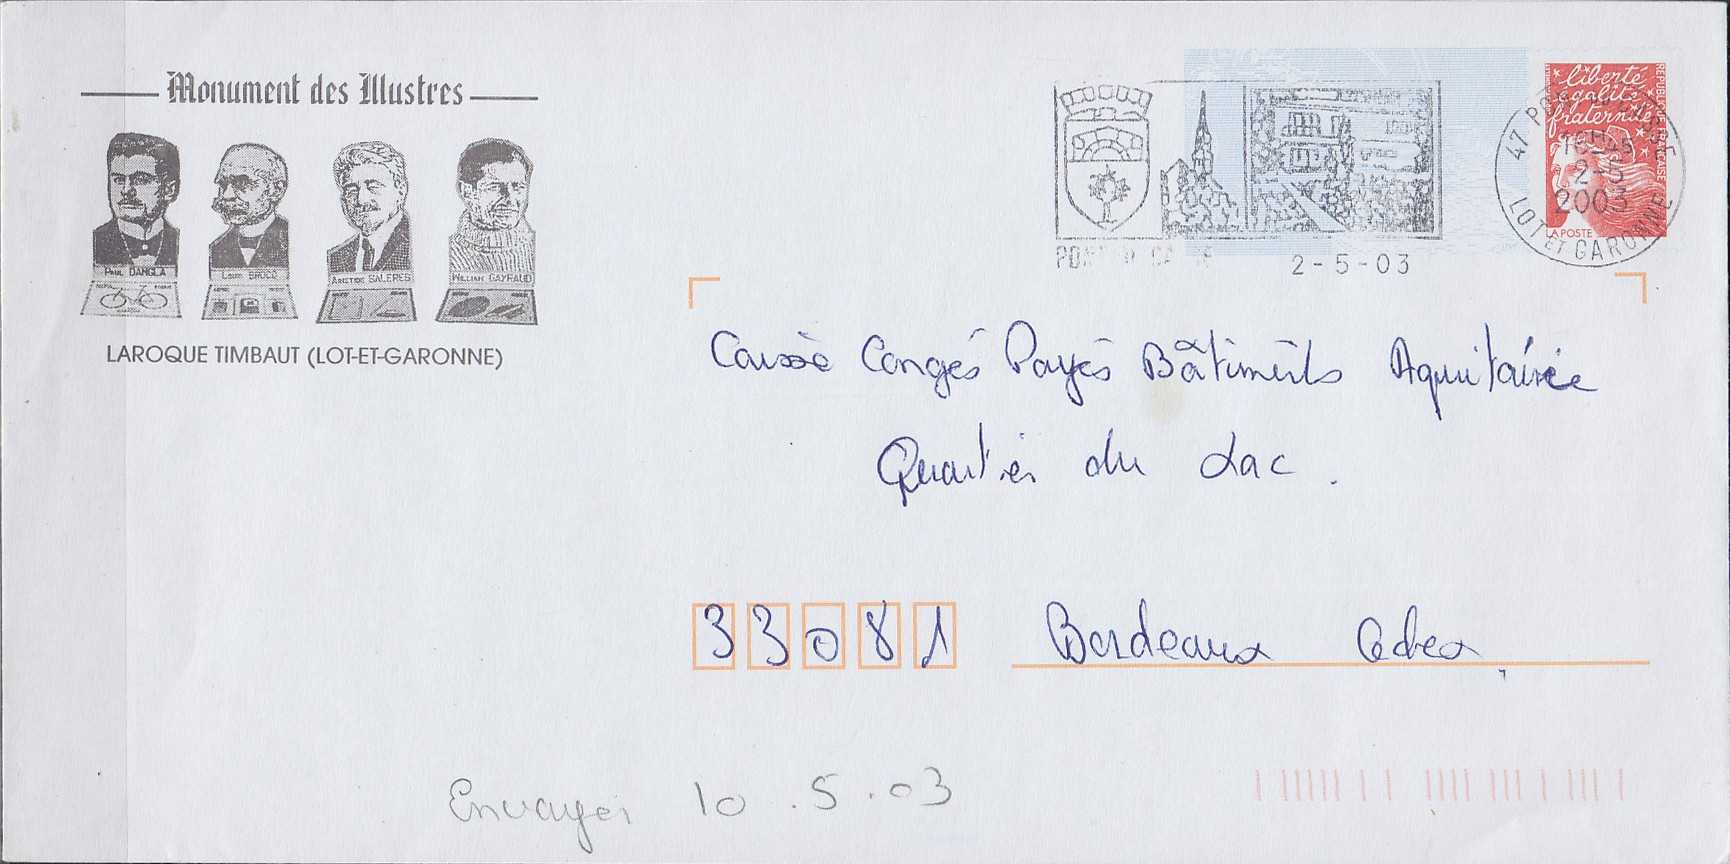 Monument des Illustres
PAUL DANGLA
LOUIS BROCQ
ARISTIDE SALERES
WILLIAM GAYRAUD
LAROQUE TIMBAUT (LOT-ET-GARONNE)
liberté
égalité
fraternité
REPUBLIQUE FRANCAISE
LA POSTE
47
LOT ET GARONNE
16H45
2-5
2003
2-5-03
Caisse Congés Payés Bâtiments Aquitaine
Quartier du Lac.
33081 Bordeaux Cedex
Envoyer 10.5.03